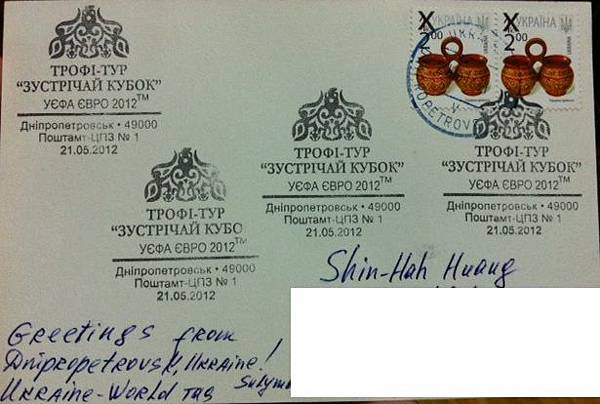 ТРОФІ-ТУР
“ЗУСТРІЧАЙ КУБОК”
УЄФА ЄВРО 2012™
Дніпропетровськ • 49000
Поштамт-ЦПЗ № 1
21.05.2012
X УКРАЇНА
2.00
X УКРАЇНА
2.00
ТРОФІ-ТУР
“ЗУСТРІЧАЙ КУБОК”
УЄФА ЄВРО 2012™
Дніпропетровськ • 49000
Поштамт-ЦПЗ № 1
21.05.2012
ТРОФІ-ТУР
“ЗУСТРІЧАЙ КУБОК”
УЄФА ЄВРО 2012™
Дніпропетровськ • 49000
Поштамт-ЦПЗ № 1
21.05.2012
ТРОФІ-ТУР
“ЗУСТРІЧАЙ КУБО
УЄФА ЄВРО 2012™
Дніпропетровськ • 49000
Поштамт-ЦПЗ № 1
21.05.2012
Shin-Hah Huang
Greetings from
Dnipropetrovsk, Ukraine!
Ukraine-World Tag